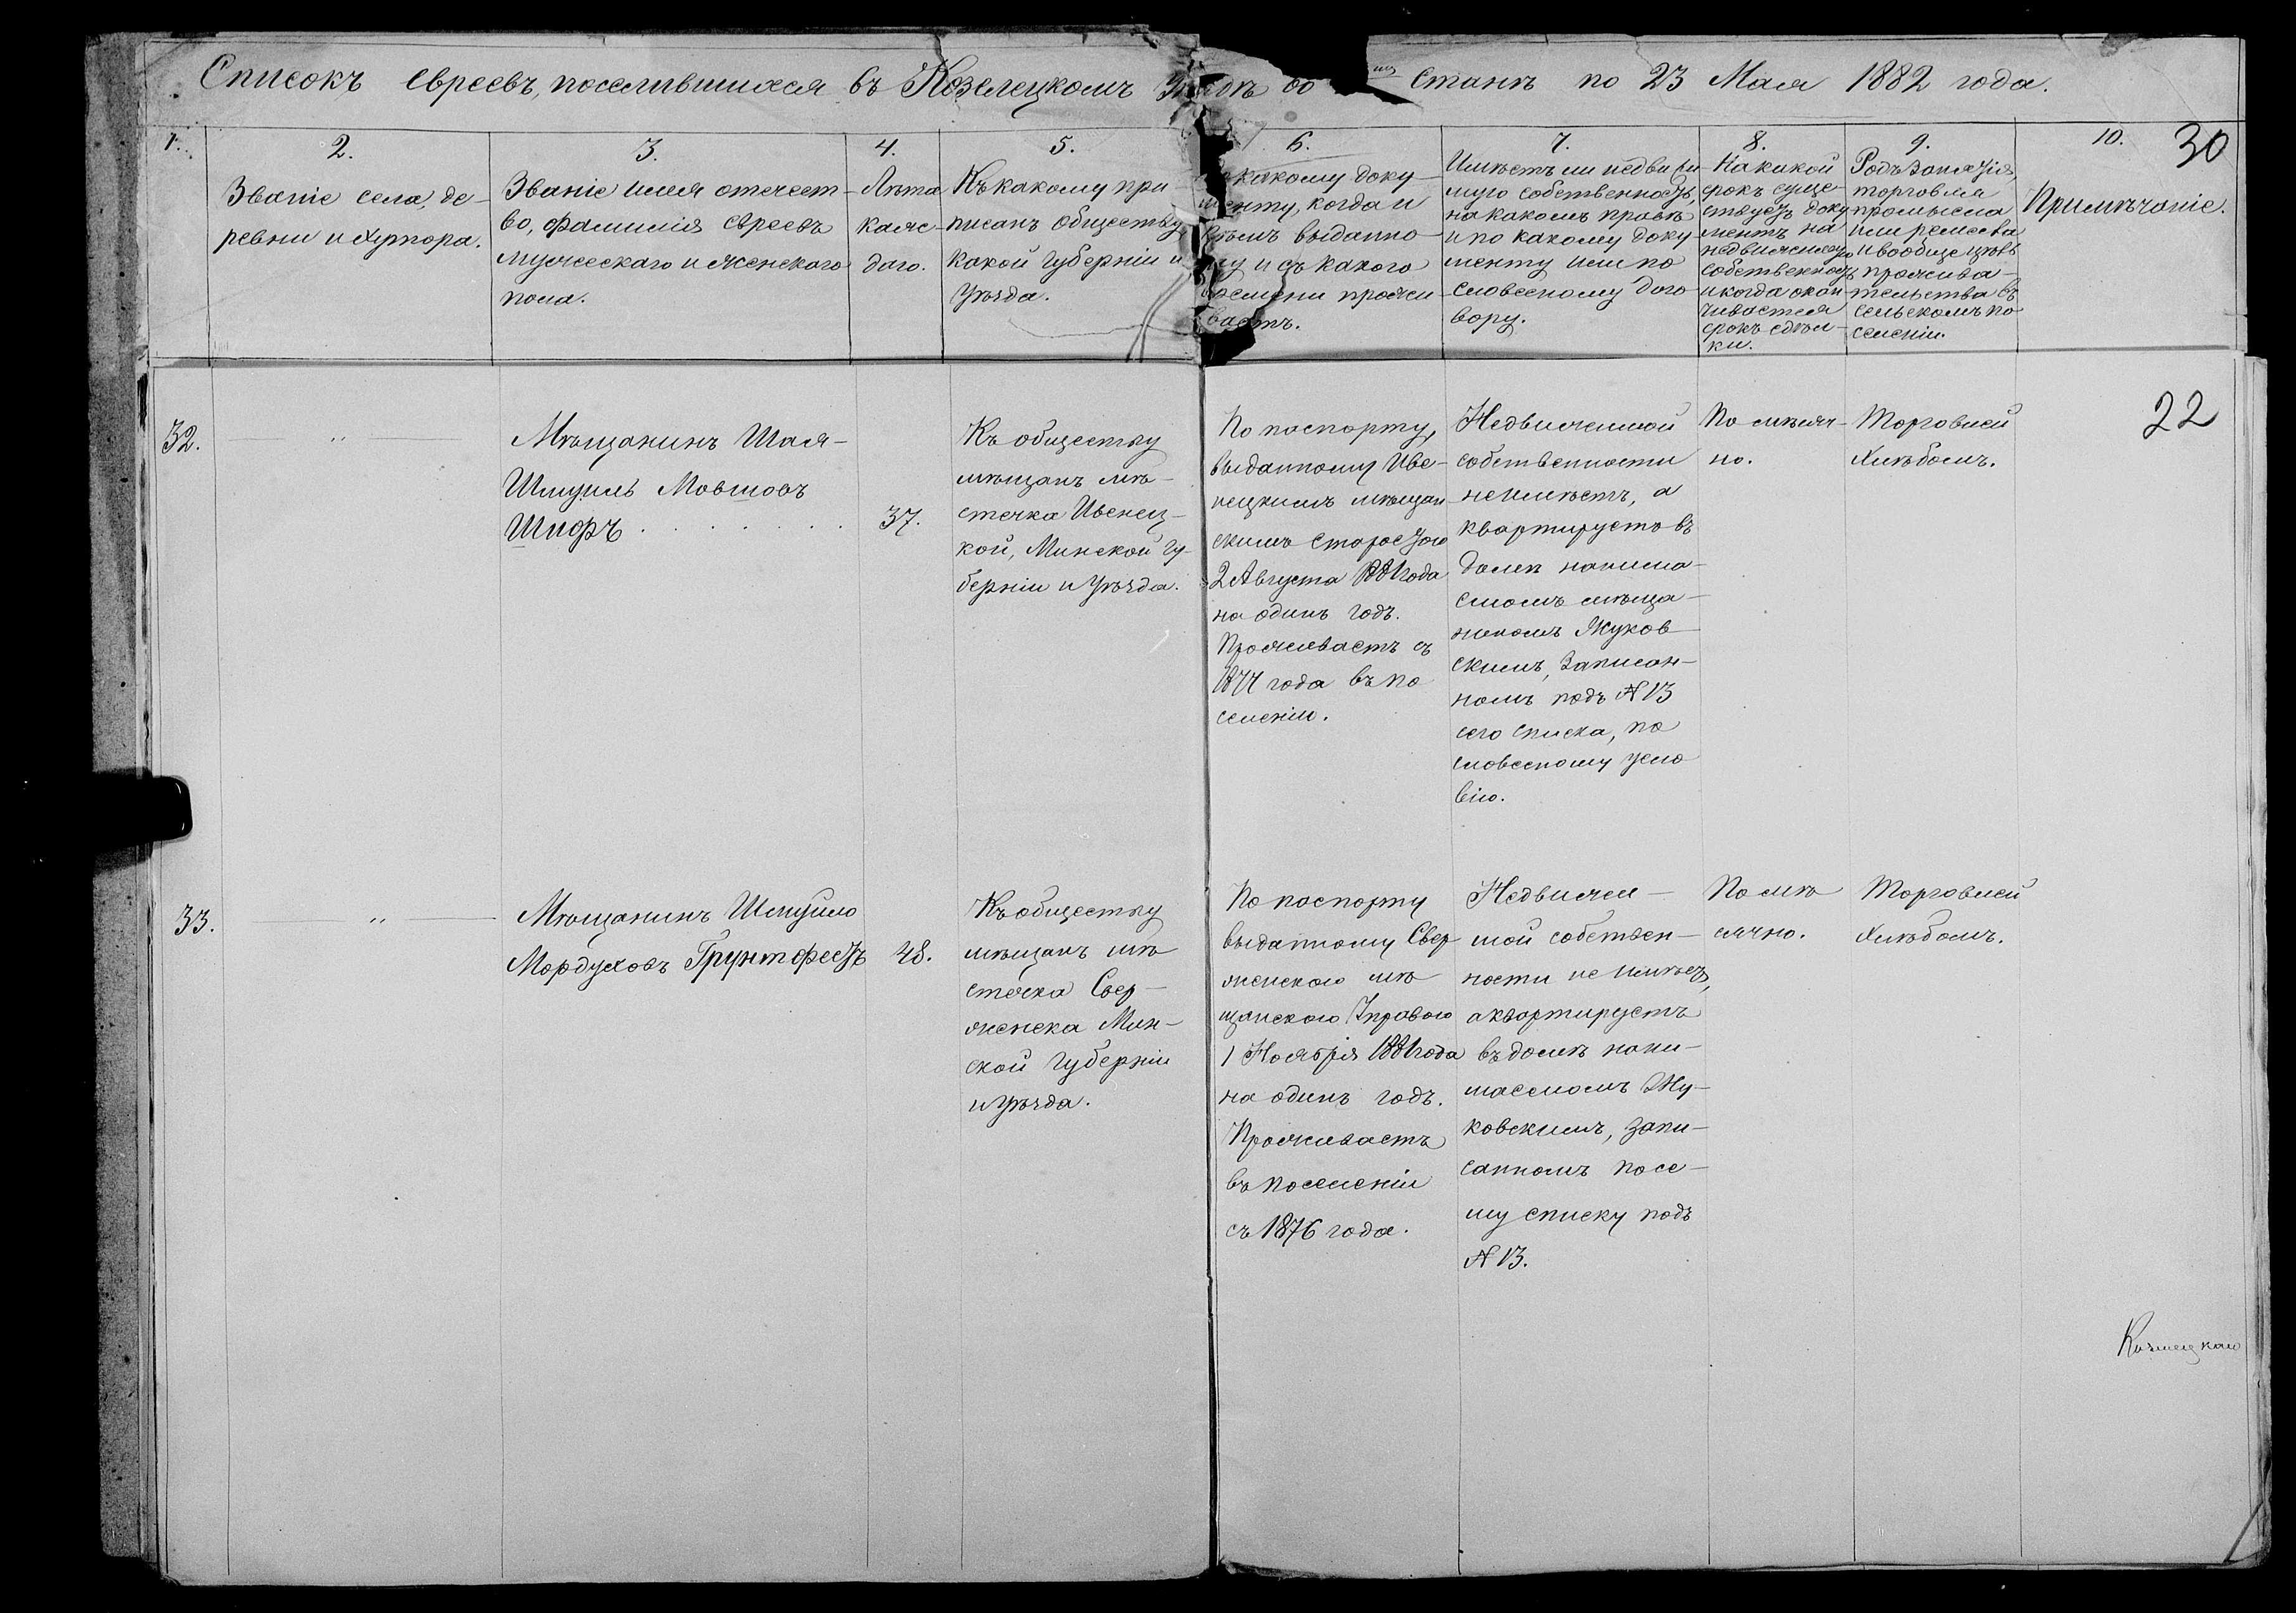 Списокъ евреевъ, поселившихся въ Козелецкомъ станѣ по 23 Мая 1882 года.
1.
2.
Званіе села, де-
ревни и хутора.
3.
Званіе имя отечест-
во, фамилія евреевъ
мужескаго и женскаго
пола.
4.
Лѣта
каж-
даго.
5.
Къ какому при-
писанъ обществу
какой губерніи и
уѣзда.
6.
какому доку-
менту, когда и
кѣмъ выданно-
му и съ какого
времени прожи-
ваетъ.
7.
Имѣетъ ли недвижи
мую собственность,
на какомъ правѣ
и по какому доку-
менту или по
словесному дого-
вору.
8.
На какой
срокъ суще-
ствуетъ доку
ментъ на
недвижимую
собственность
и когда окан-
чивается
срокъ сдѣл-
ки.
9.
Родъ занятія,
торговля
промысла
или ремесла
и вообще цѣль
прожива-
тельства въ
сельскомъ по
селеніи.
10.
Примѣчаніе.
30
22
32.
"
Мѣщанинъ Шая-
Шмуиль Мовшовъ
Шифръ . . . . . . .
37.
Къ обществу
мѣщанъ мѣ-
стечка Ивенец-
кой, Минской гу-
берніи и уѣзда.
По паспорту,
выданному Иве-
нецкимъ мѣщан
скимъ старостою
2 Августа 1881 года
на одинъ годъ.
Проживаетъ съ
1877 года въ по
селеніи.
Недвижимой
собственности
не имѣетъ, а
квартируетъ въ
домѣ нанима-
емомъ мѣща-
ниномъ Жуков-
скимъ, записан-
номъ подъ № 13
сего списка, по
словесному усло
вію.
По мѣсяч-
но.
Торговлей
хлѣбомъ.
33.
"
Мѣщанинъ Шмуило
Мордуховъ Грунтфестъ
48.
Къ обществу
мѣщанъ мѣ
стечка Свер-
женска Мин-
ской губерніи
и уѣзда.
По паспорту
выданному Свер
женскою мѣ
щанскою Управою
1 Ноября 1881 года
на одинъ годъ.
Проживаетъ
въ поселеніи
съ 1876 года.
Недвижи-
мой собствен-
ности не имѣетъ,
а квартируетъ
въ домѣ нани-
маемомъ Жу-
ковскимъ, запи-
санномъ по се-
му списку подъ
№ 13.
По мѣ
сячно.
Торговлей
хлѣбомъ.